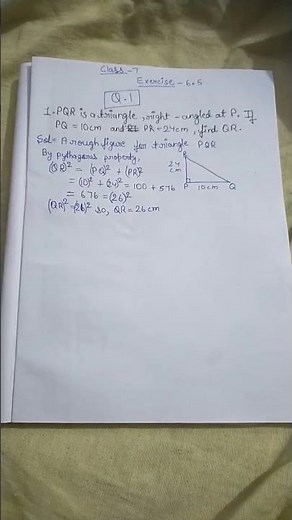 Class-7
Exercise-6.5
Q.1
1. PQR is a triangle, right-angled at P. If
PQ = 10cm and PR = 24cm, find QR.
Sol- A rough figure for triangle PQR
By pythagoras property,
(QR)² = (PQ)² + (PR)²
= (10)² + (24)² = 100 + 576
= 676 = (26)²
(QR)² = (26)² so, QR = 26 cm
R
24
cm
P 10cm Q